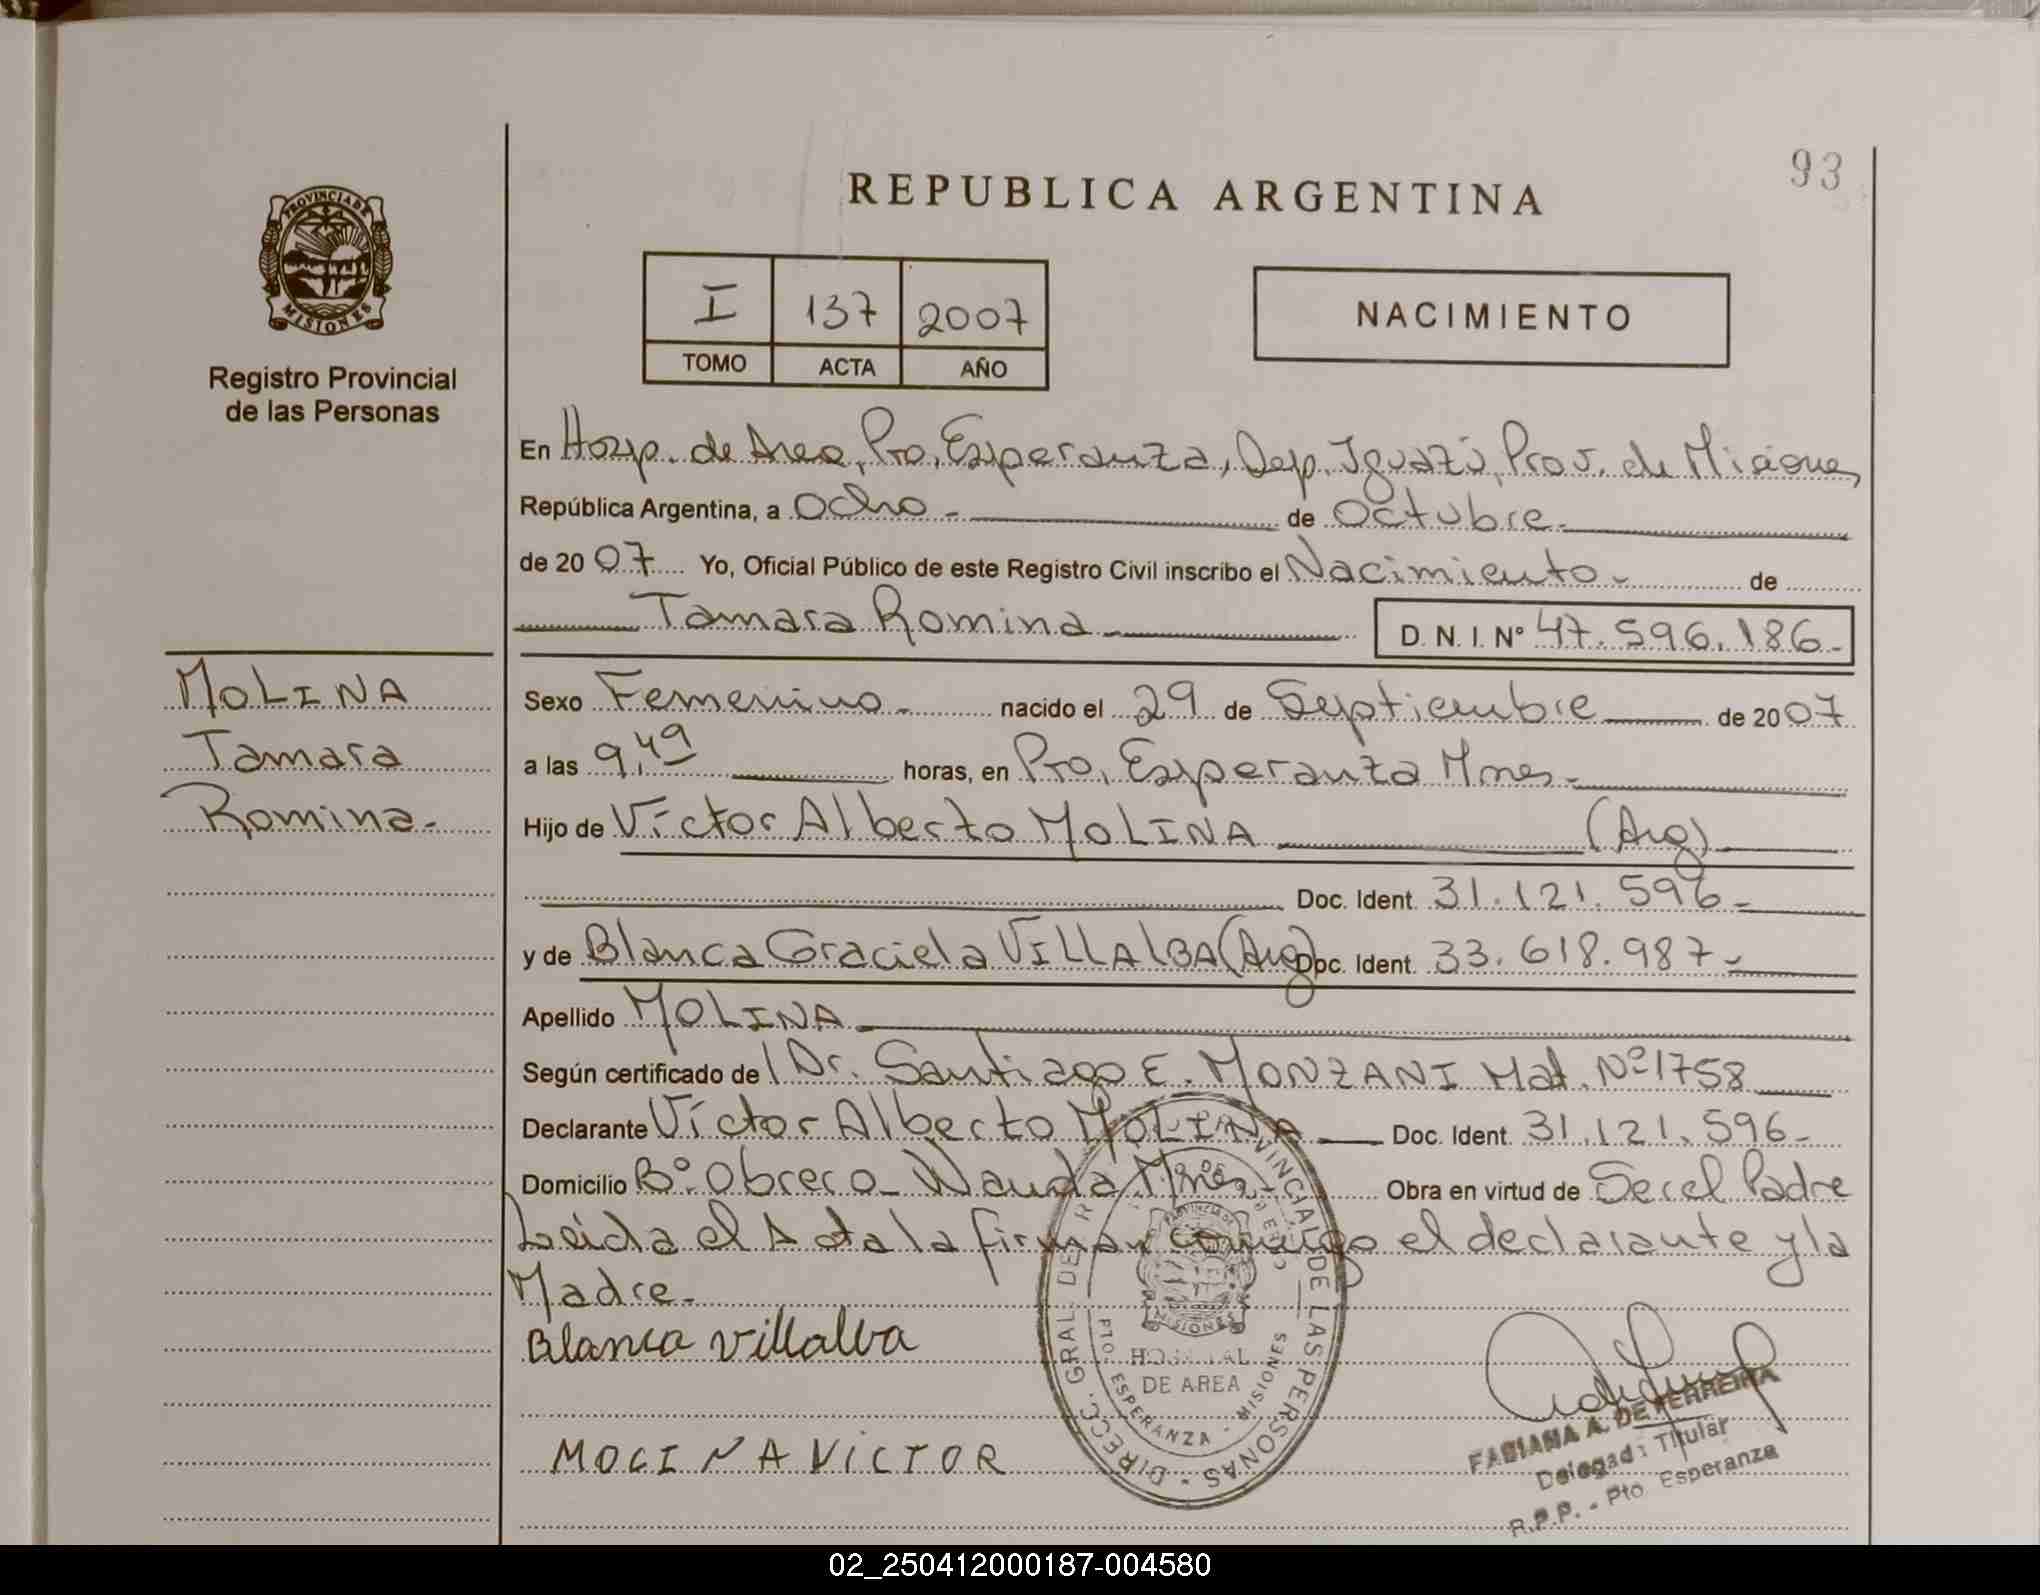 93
REPUBLICA ARGENTINA
PROVINCIA DE
MISIONES
Registro Provincial
de las Personas
I 137 2007
TOMO ACTA AÑO
NACIMIENTO
En Hosp. de Area, Pto, Esperanza, Dep. Iguazú, Prov. de Misiones
República Argentina, a Ocho - de Octubre
de 2007 Yo, Oficial Público de este Registro Civil inscribo el Nacimiento - de
Tamara Romina D. N. I. Nº 47.596.186-
MOLINA
Tamara
Romina-
Sexo Femenino - nacido el 29 de Septiembre de 2007
a las 9,49 horas, en Pto, Esperanza Mnes-
Hijo de Víctor Alberto MOLINA (Arg)
Doc. Ident. 31.121.596-
y de Blanca Graciela VILLALBA (Arg) Doc. Ident. 33.618.987-
Apellido MOLINA
Según certificado de l Dr. Santiago E. MONZANI Mat. Nº 1758
Declarante Víctor Alberto MOLINA Doc. Ident. 31.121.596-
Domicilio Bº Obrero - Wanda Mnes - Obra en virtud de Ser el Padre
Leida el Acta la firman conmigo el declarante y la
Madre-
Blanca villalba
MOLINA VICTOR
DIRECC. GRAL. DE R PROVINCIAL DE LAS PERSONAS
PROVINCIA DE
MISIONES
HOSPITAL
DE AREA
PTO ESPERANZA - MISIONES
FABIANA A. DE FERREIRA
Delegada Titular
R.P.P. - Pto Esperanza
02_250412000187-004580